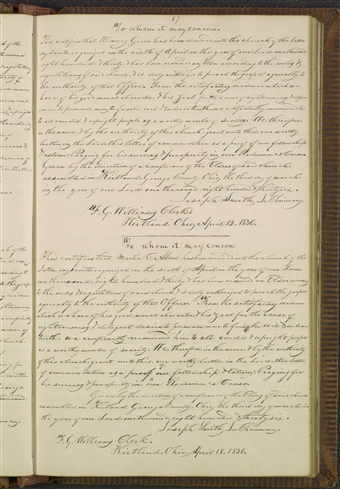 57
To whom it may concern
This certifies that Harvey Green has been received into the church of the latter
day saints organized on the sixth of April in the year of our Lord one thousand
eight hundred & thirty & has been ordained an elder according to the rules &
regulations of said church, & is duly authorized to preach the gospel agreeably to
the authority of that Office. From the satisfactory evidence which we
have of his good moral character & his zeal for the cause of righteousness & diligent
desire to persuade men to forsake evil & embrace truth we confidently recommend him
to all candid & upright people as a worthy member of society. We, therefore
in the name, & by the authority of this church grant unto this our worthy
brother in the Lord this letter of commendation as a proof of our fellowship
& esteem, Praying for his success & prosperity in our Redeemer's Cause.
Given by the direction of a conference of the Elders of said church
assembled in Kirtland, Geauga County, Ohio, the third day of March in
the year of our Lord one thousand eight hundred & thirty six.
Joseph Smith Jr Chairman,
F. G. Williams Clerk
Kirtland, Ohio, April 18, 1836.
To whom it may concern
This certifies that Martin C. Allred has been received into the church of the
latter day saints organized on the sixth of April in the year of our Lord
one thousand eight hundred & thirty & has been ordained an Elder according
to the rules & regulations of said church & is duly authorized to preach the gospel
agreeably to the authority of that Office. From the satisfactory evidence
which we have of his good moral character & his zeal for the cause of
righteousness & diligent desire to persuade men to forsake evil & embrace
truth we confidently recommend him to all candid & upright people
as a worthy member of society. We, therefore, in the name & by the authority
of this church grant unto this, our worthy brother in the Lord this letter
of commendation as a proof of our fellowship & esteem, Praying for
his success & prosperity in our Redeemer's Cause
Given by the direction of a conference of the Elders of said church
assembled in Kirtland Geauga County, Ohio, the third day of March in
the year of our Lord one thousand eight hundred & thirty six.
Joseph Smith Jr Chairman,
F. G. Williams Clerk.
Kirtland, Ohio, April 18, 1836.